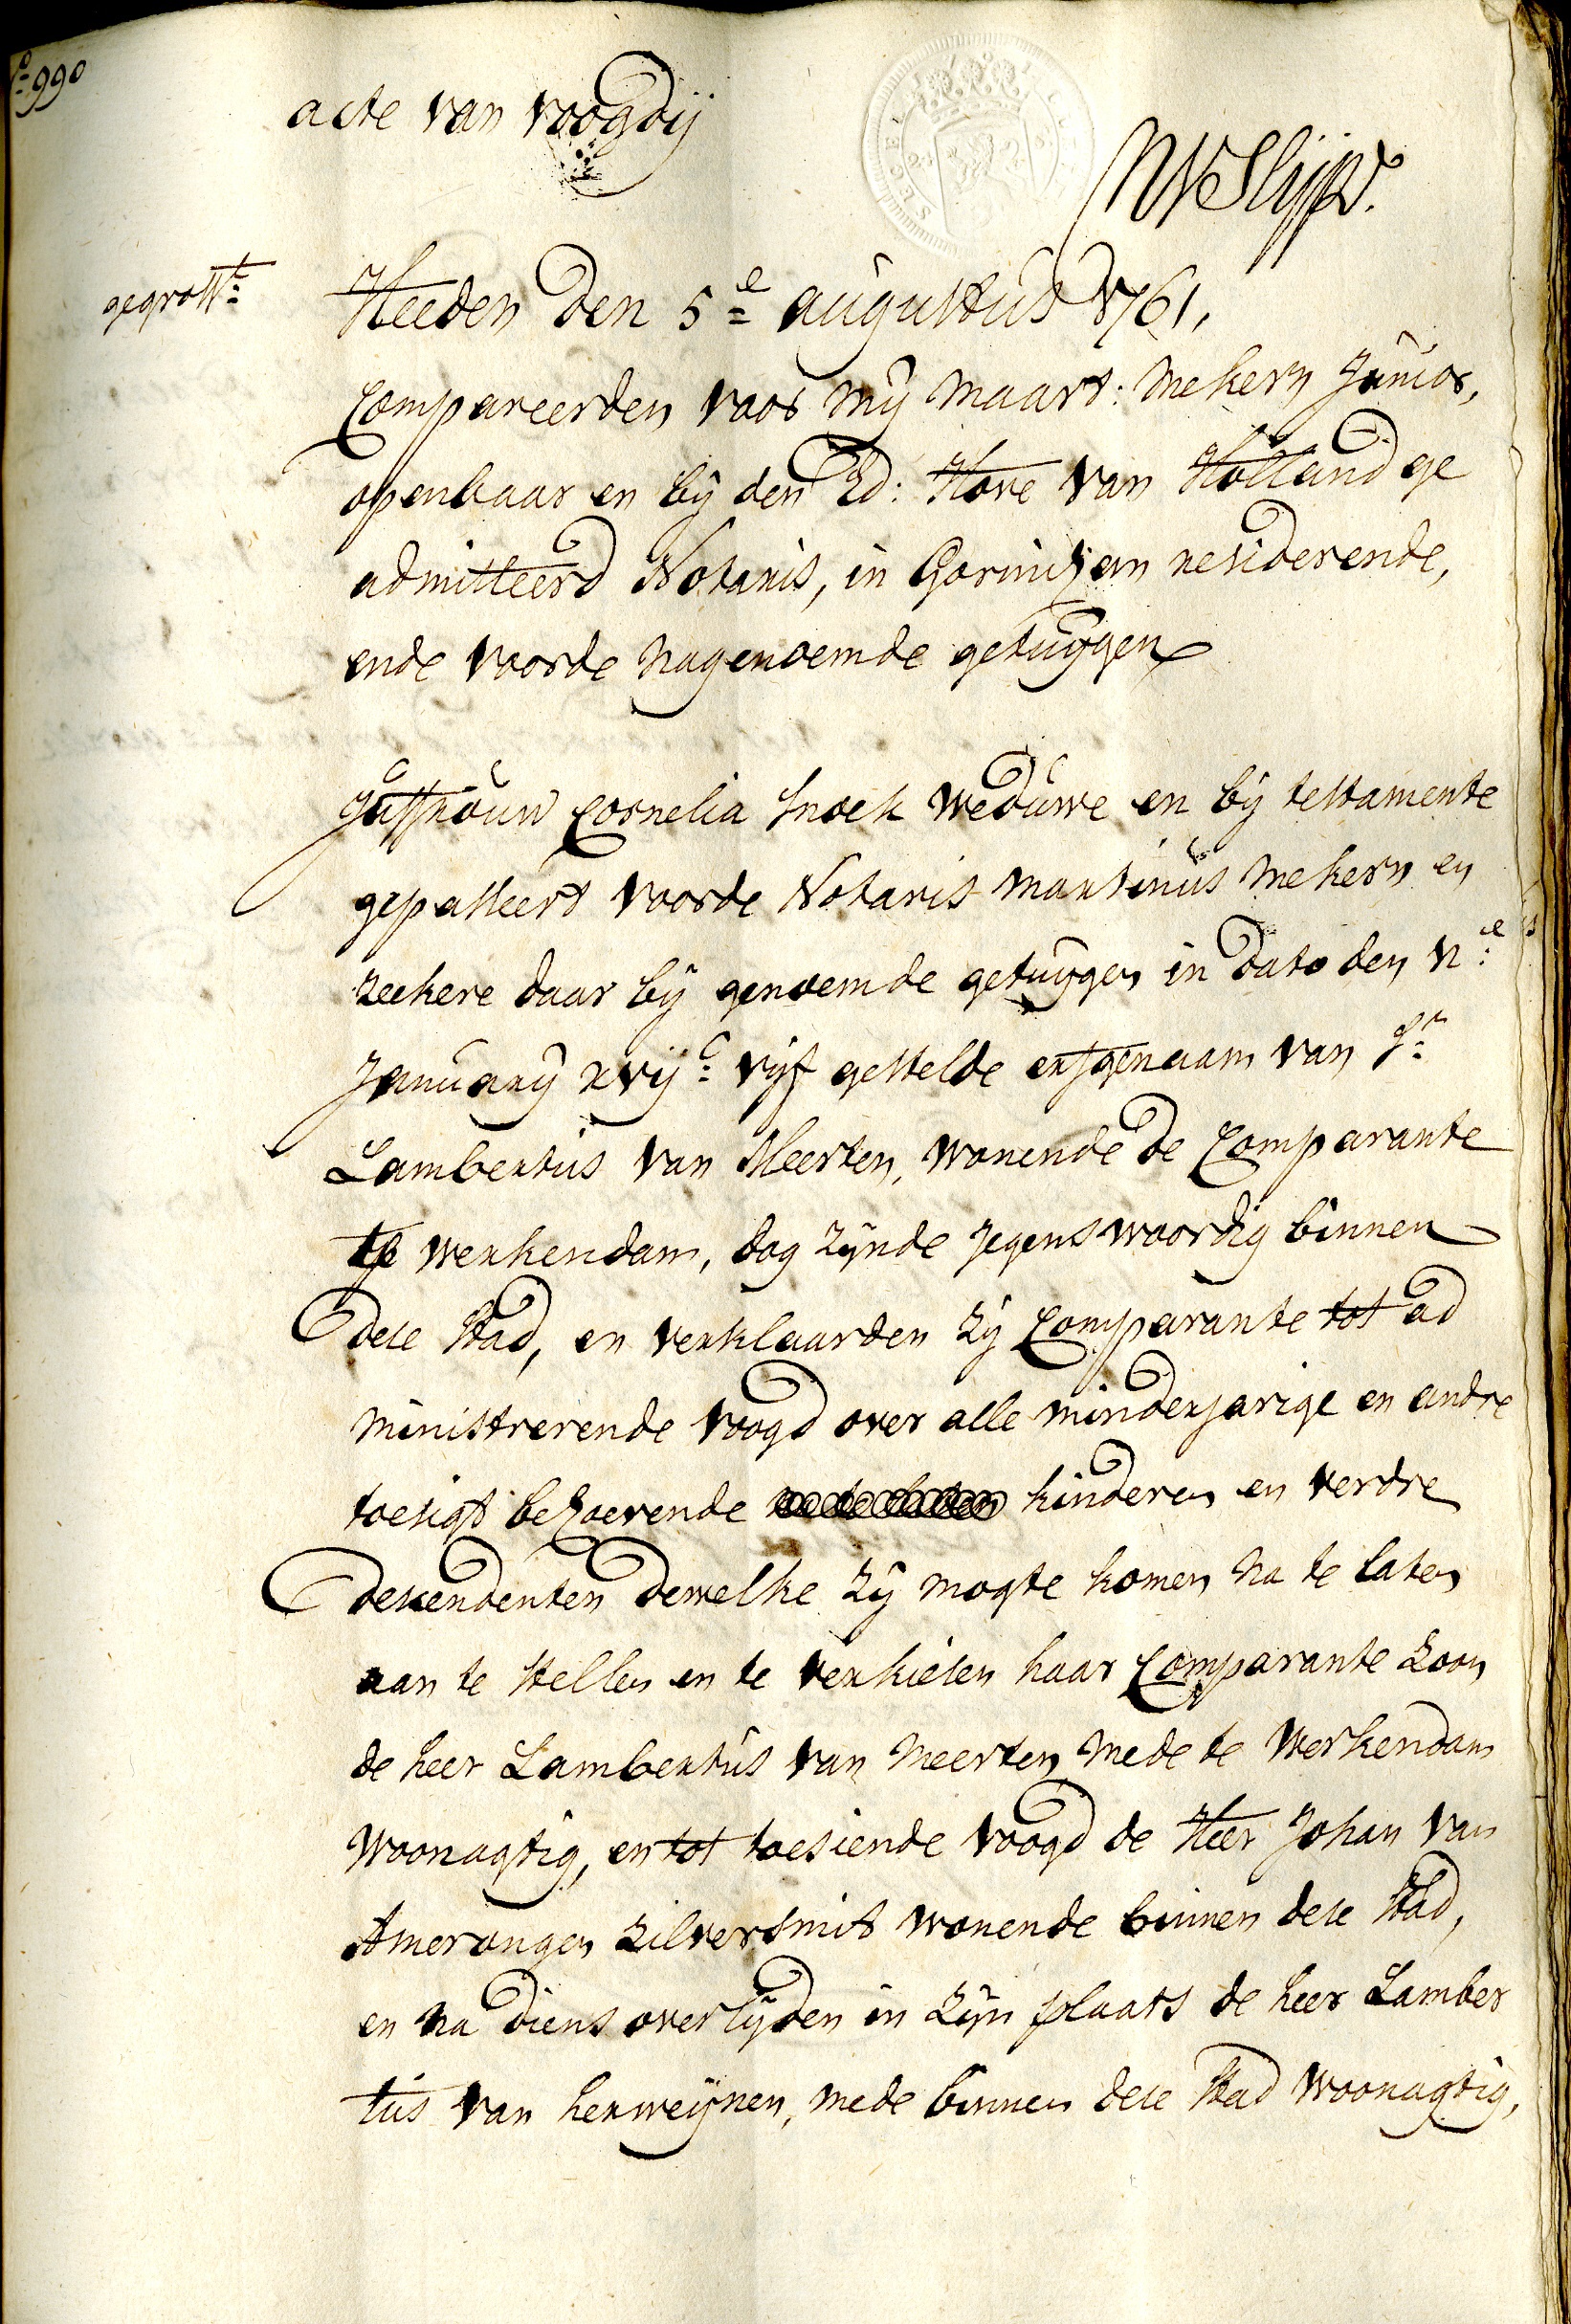 990
acte van voogdij
gegrosst.
Heeden den 5.e augustus 1761,
Compareerden voor mij Maart: Mekern Junior,
openbaar en bij den Ed: Hove van Holland ge
admitteerd Notaris, in Gorinchem resideerende,
ende voorde nagenoemde getuijgen
Juffrouw Cornelia Snoek weduwe en bij testamente
gepasseert voorde Notaris Martinus Mekern en
zeekere daar bij genoemde getuijgen in dato den
January xvij.c vijf gestelde erfgenaam van Sr.
Lambertus van Meerten, wonende de Comparante
te werkendam, dog zijnde jegenswoordig binnen
dese stad, en verklaarden zij Comparante tot ad
ministrerende voogd over alle minderjarige en andre
toesigt behoevende kinderen en verdre
descendenten dewelke zij mogte komen na te laten
aan te stellen en te verkiesen haar Comparante zoon
de heer Lambertus van Meerten mede te Werkendam
woonagtig, en tot toesiende voogd de Heer Johan van
Amerongen zilversmit wonende binnen dese stad,
en na diens overlijden in zijn plaats de heer Lamber
tus van herweijnen, mede binnen dese stad woonagtig,